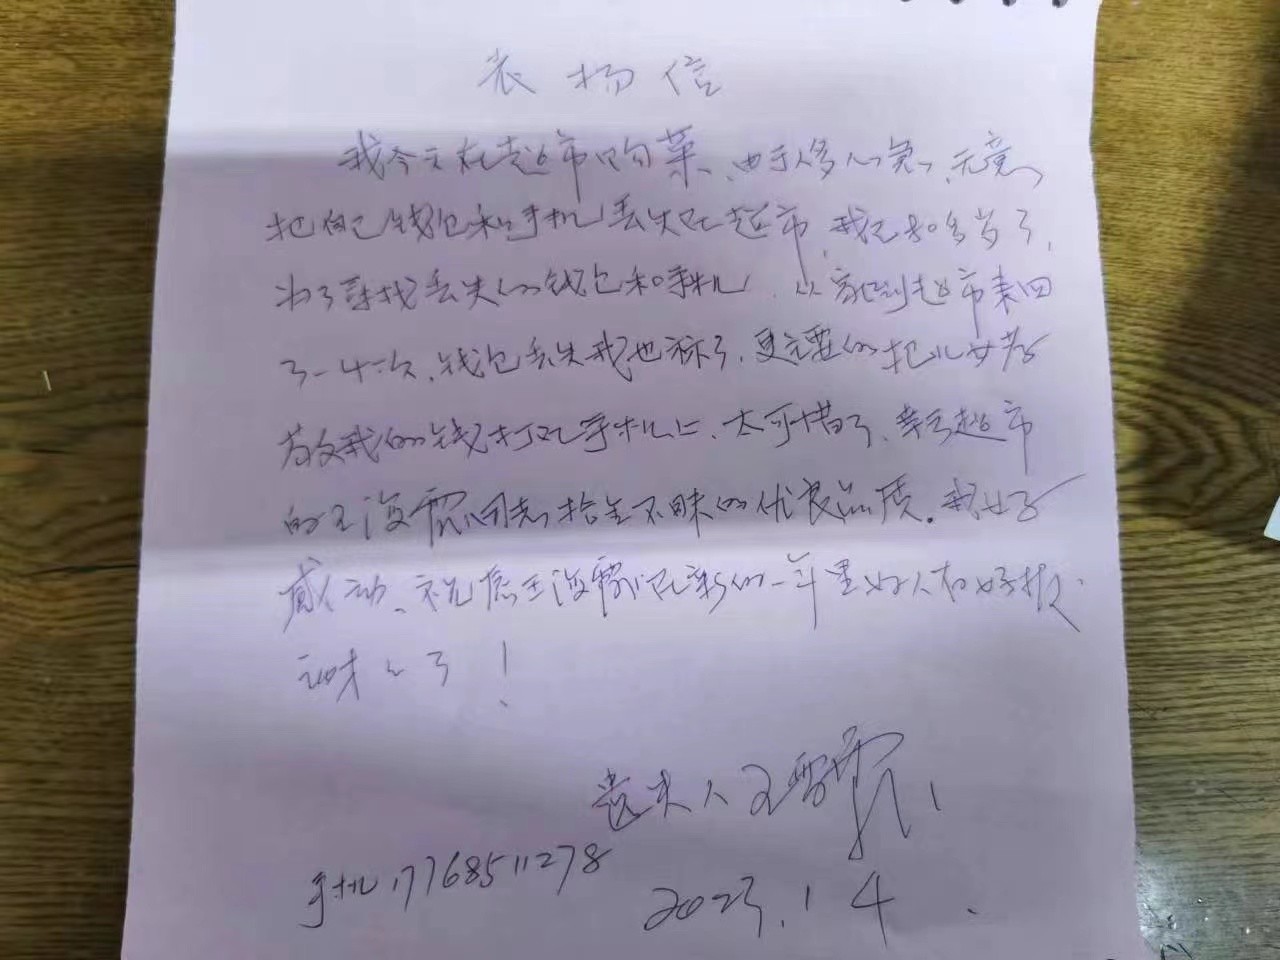 表扬信
我今天在超市购菜、由于人多心急、无意
把自己钱包和手机丢失在超市，我已多岁了，
为了寻找丢失的钱包和手机，从家到超市来回
3-4次、钱包丢失我也称了，更主要的把儿女孝
敬我的钱打在手机上、太可惜了、幸亏超市
的王海霞同志拾金不昧的优良品质。我好
感动、祝愿王海霞在新的一年里好人有好报.
谢谢了！
遗失人王
手机17768511278
2023.1 4